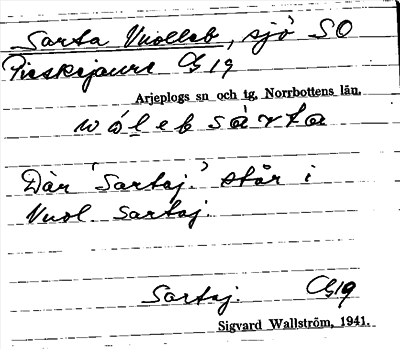 Sarta Vuolleb, sjö SO
Pieskejaure C19
Arjeplogs sn och tg, Norrbottens län.
wȯlebsàrta
Där 'Sartaj.' står i
Vuol. Sartaj.
Sartaj. C19
Sigvard Wallström, 1941.